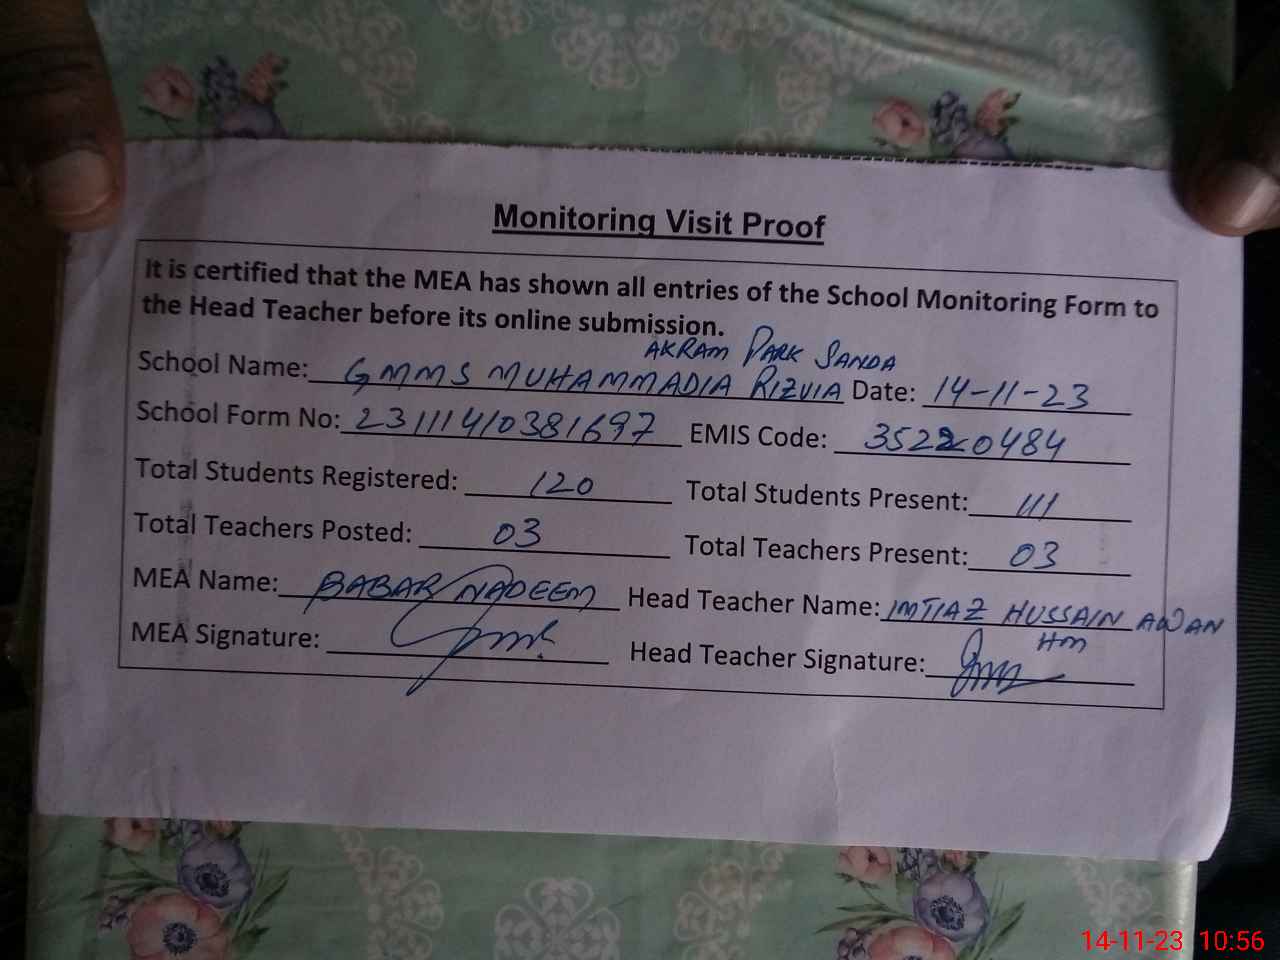 Monitoring Visit Proof
It is certified that the MEA has shown all entries of the School Monitoring Form to
the Head Teacher before its online submission.
AKRAM PARK SANDA
School Name: GMMS MUHAMMADIA RIZVIA Date: 14-11-23
School Form No: 23111410381697 EMIS Code: 35220484
Total Students Registered: 120 Total Students Present: 111
Total Teachers Posted: 03 Total Teachers Present: 03
MEA Name: BABAR NADEEM Head Teacher Name: IMTIAZ HUSSAIN AWAN
HM
MEA Signature: Head Teacher Signature:
14-11-23 10:56